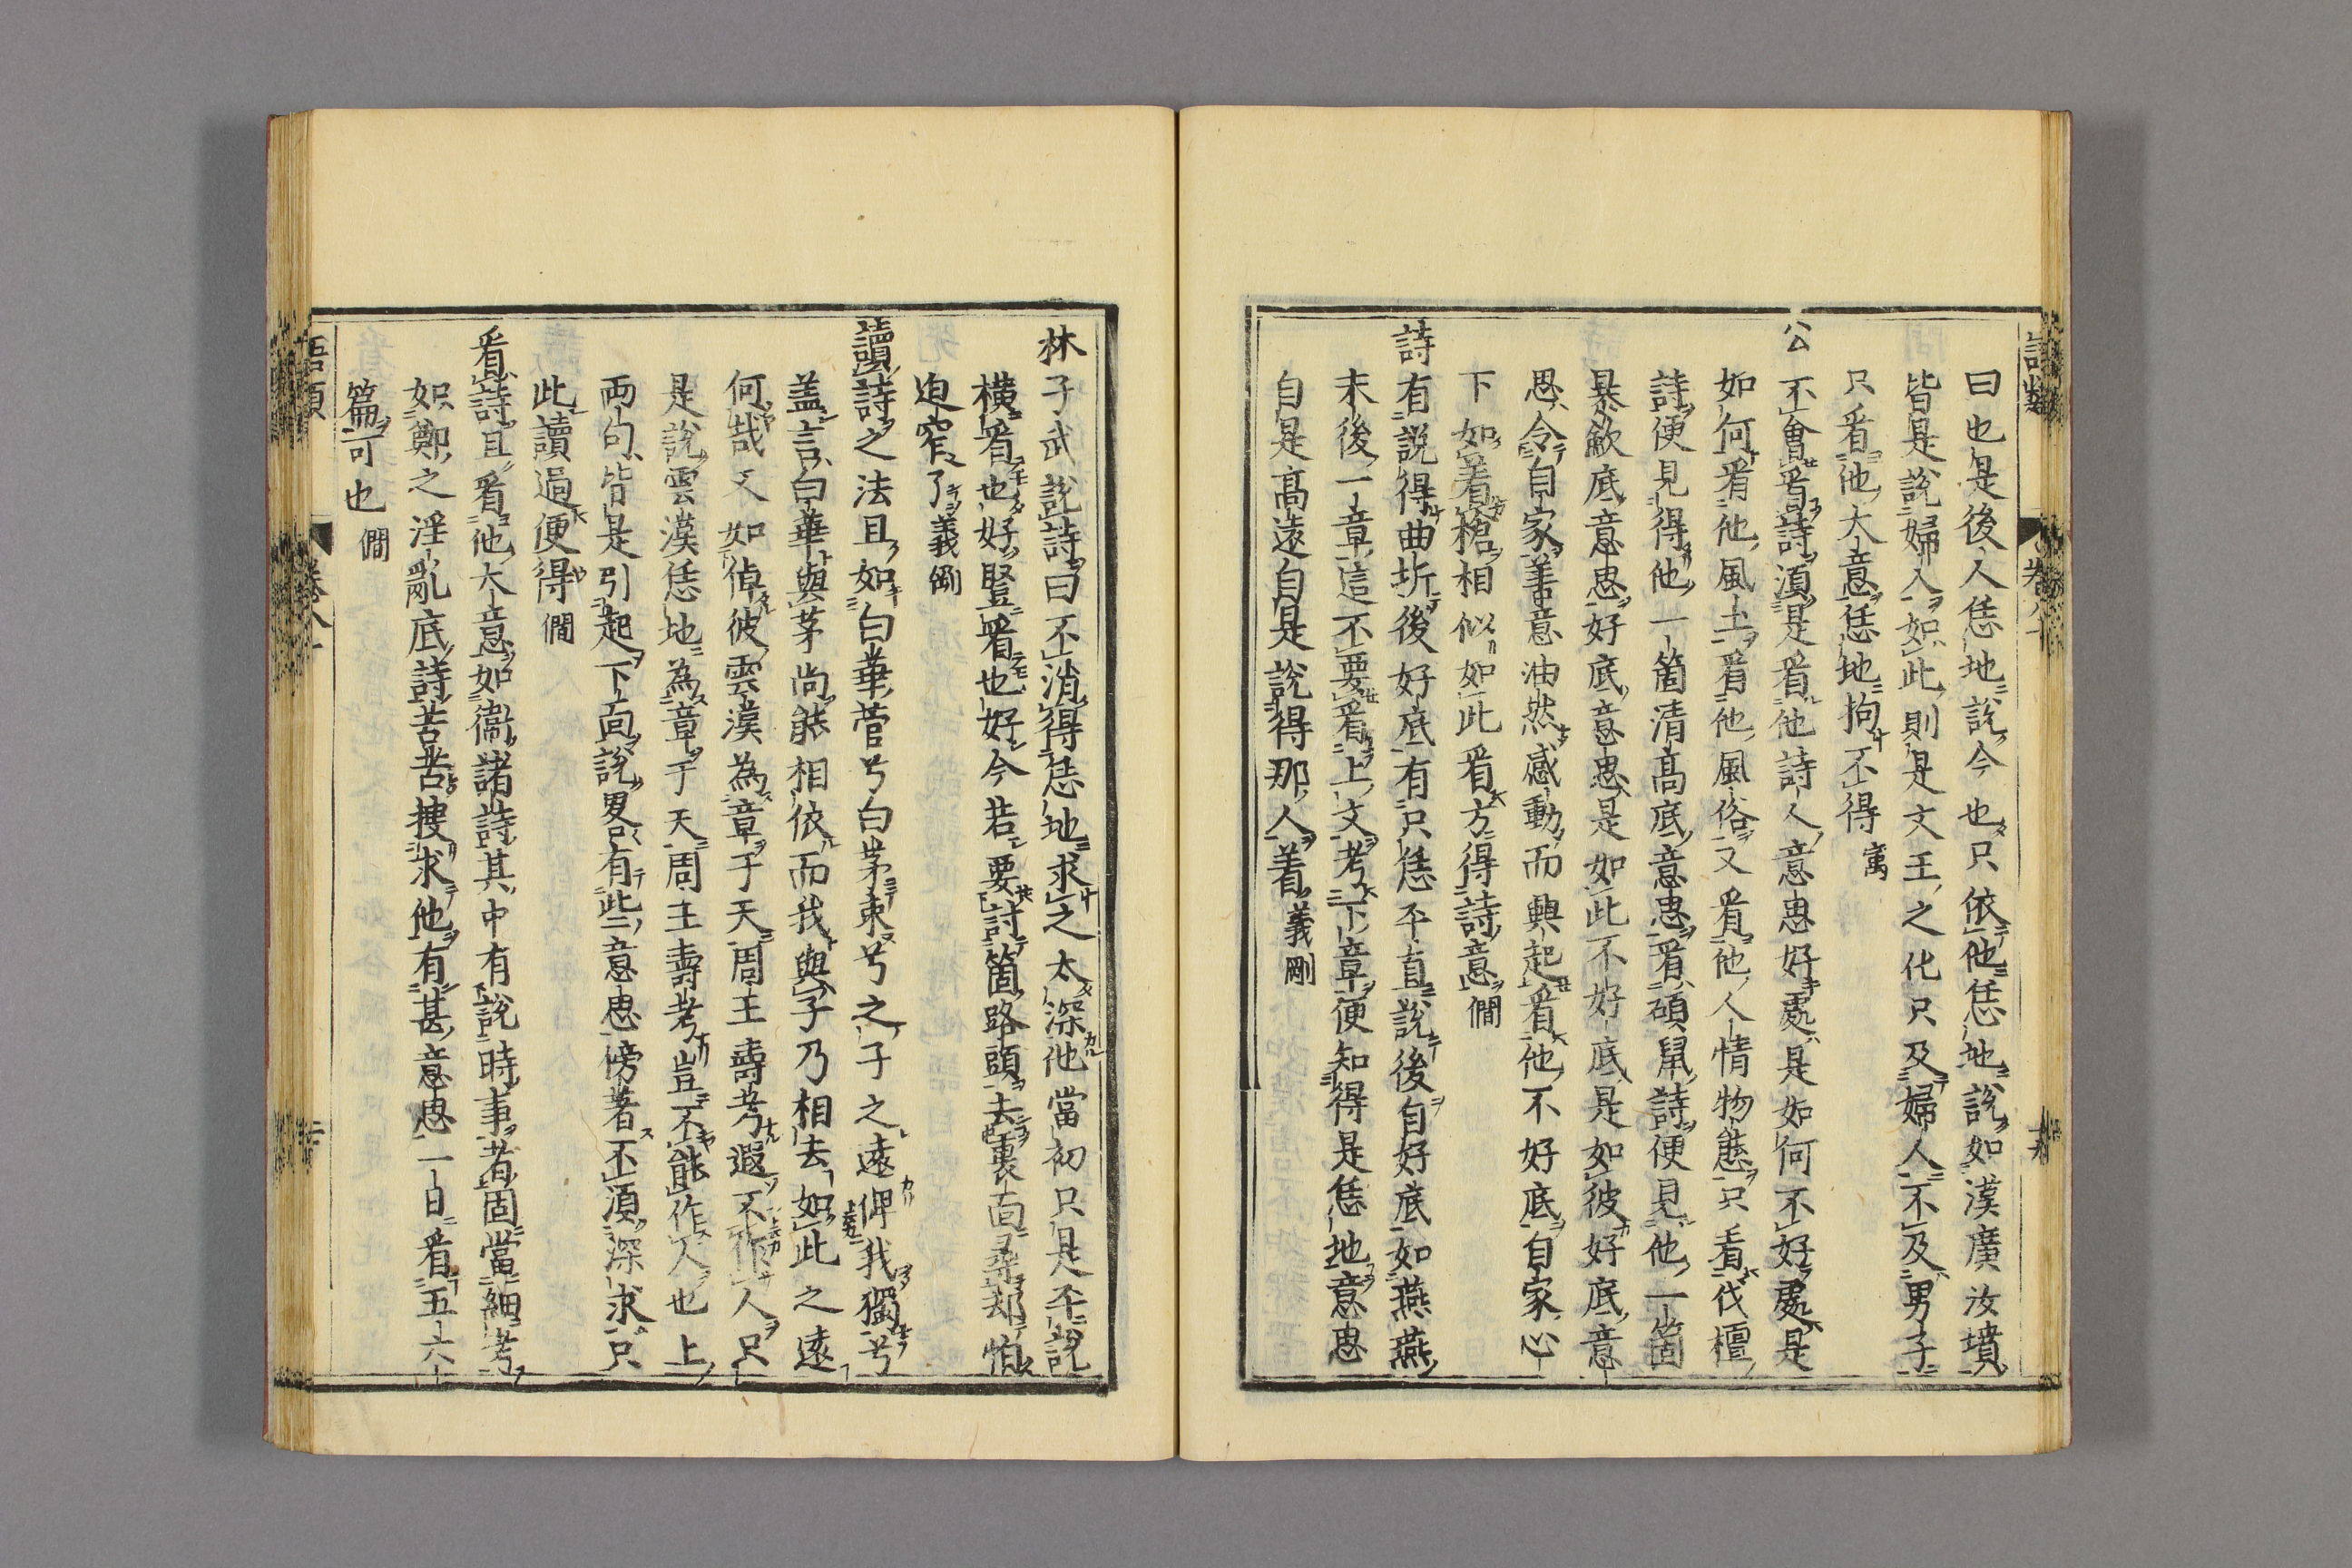 曰也是後人恁地說今也只依他恁地說如漢廣汝墳
皆是說婦人如此則是文王之化只及婦人不及男子
只看他大意恁地拘不得 㝢
公不會看詩湏是看他詩人意思好處是如何不好處是
如何看他風土看他風俗又看他人情物態只看伐檀
詩便見得他一箇清高底意思看碩鼠詩便見他一箇
暴斂底意思好底意思是如此不好底是如彼好底意
思令自家善意油然感動而興起看他不好底自家心
下如着槍相似如此看方得詩意 僩
詩有說得曲折後好底有只恁平直說後自好底如燕燕
末後一章這不要看上文考下章便知得是恁地意思
自是高遠自是說得那人着 義剛
林子武說詩曰不消得恁地求之太深他當初只是平說
橫看也好竪看也好今若要討箇路頭去裏面尋却怕
迫窄了 義剛
讀詩之法且如白華菅兮白茅束兮之子之遠俾我獨兮
盖言白華與茅尚能相依而我與子乃相去如此之遠
何哉又如倬彼雲漢為章于天周王壽考遐不作人只
是說雲漢恁地為章于天周王壽考豈不能作人也上
兩句皆是引起下面說畧有些意思傍著不湏深求只
此讀過便得 僩
看詩且看他大意如衞諸詩其中有說時事者固當細考
如鄭之淫亂底詩苦苦搜求他有甚意思一日看五六十
篇可也 僩
語類 卷八十